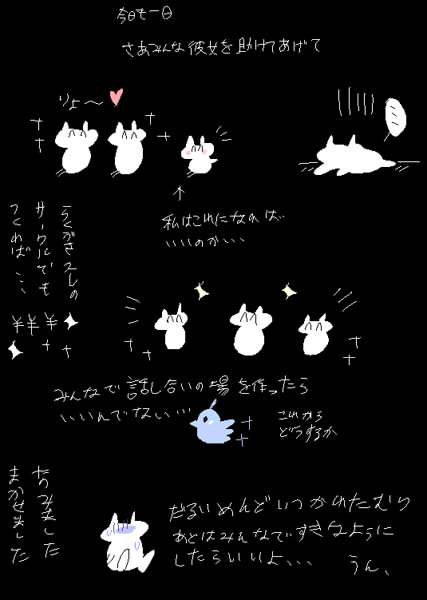 今日も一日
さあみんな彼女を助けてあげて
りょ〜
私はこれになれば…
いいのか…
らくがきスレの
サークルでも
つくれば…
¥¥¥
みんなで話し合いの場を作ったら
いいんでない…
これから
どうするか
たのみました
まかせました
だるいめんどいつかれたむり
あとはみんなですきなように
したらいいよ、、、
うん、